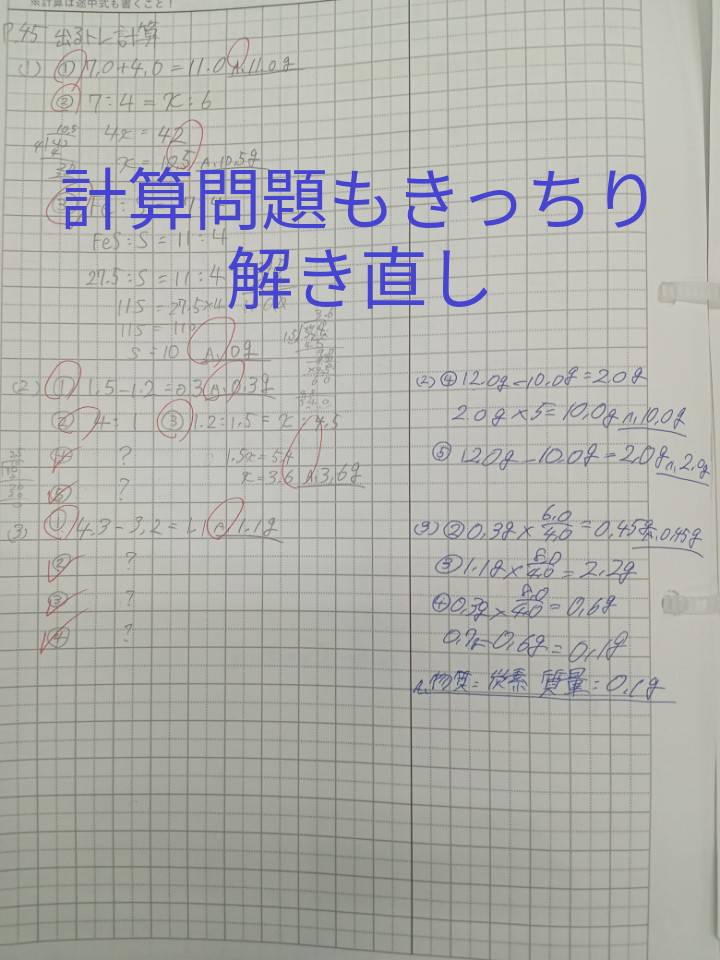 ※計算は途中式も書くこと！
P.45 出るトレ計算
(1) ① 7.0+4.0=11.0 A.11.0g
② 7:4=x:6
4x=42
x=10.5 A.10.5g
計算問題もきっちり
解き直し
③
FeS:S=11:4
27.5:S=11:4
11S=27.5×4
11S=110
S=10
(2) ① 1.5-1.2=0.3 A.0.3g
② 4:
③ 1.2:1.5=x:4.5
1.5x=5.4
x=3.6 A.3.6g
④ ?
⑤ ?
(3) ① 4.3-3.2=1.1 A.1.1g
② ?
③ ?
④ ?
(2) ④ 12.0g-10.0g=2.0g
2.0g×5=10.0g A.10.0g
⑤ 12.0g-10.0g=2.0g A.2.0g
(3) ② 0.3g×6.0/4.0=0.45g A.0.45g
③ 1.1g×8.0/4.0=2.2g
④ 0.3g×8.0/4.0=0.6g
0.7g-0.6g=0.1g
A.物質:炭素 質量:0.1g